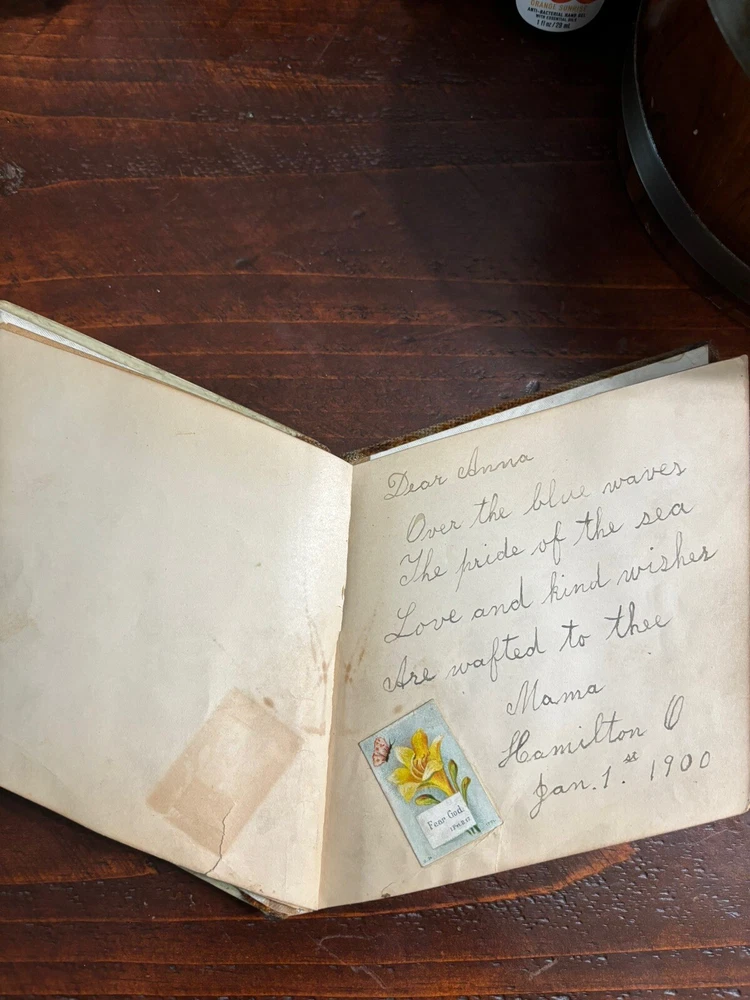 ORANGE SUNRISE
ANTI-BACTERIAL HAND GEL
WITH ESSENTIAL OILS
1 fl oz/29 mL
Dear Anna
Over the blue waves
The pride of the sea
Love and kind wishes
Are wafted to thee
Mama
Hamilton O
Jan. 1.st 1900
Fear God.